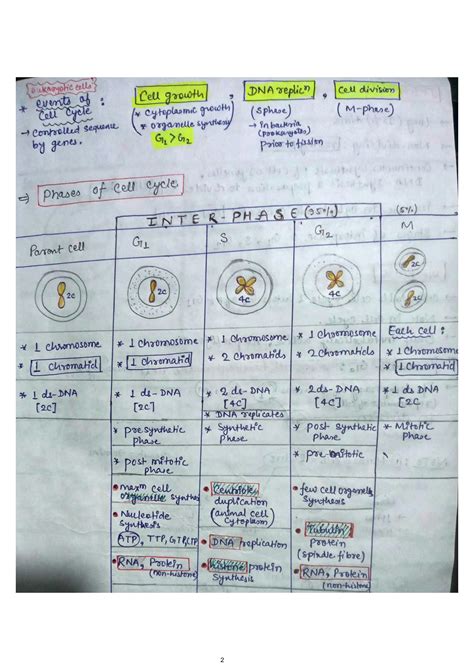 Eukaryotic cells
* events of Cell Cycle :
→ controlled sequence by genes.
Cell growth ,
(* cytoplasmic growth
* organelle synthesis)
G1 > G2
DNA replicn ,
(Sphase)
→ in bacteria (prokaryotes) prior to fission
Cell division
(M-phase)
⇒ Phases of cell cycle
INTER-PHASE (95%)
(5%)
Parent cell
G1
S
G2
M
2C
2C
4C
4C
2C
2C
* 1 chromosome
* 1 chromatid
* 1 ds-DNA
[2C]
* 1 chromosome
* 1 chromatid
* 1 ds-DNA
[2C]
* presynthetic phase
* post mitotic phase
• maxm cell organelle synthesis
• Nucleotide synthesis
ATP, TTP, GTP, CTP
• RNA, Protein
(non-histone)
* 1 chromosome
* 2 chromatids
* 2 ds-DNA
[4C]
* DNA replicates
* Synthetic phase
• Centriole duplication
(animal cell cytoplasm)
• DNA replication
• histone protein synthesis
* 1 chromosome
* 2 chromatids
* 2ds-DNA
[4C]
* post synthetic phase
* pre mitotic
• few cell organelle synthesis
• Tubulin protein
(spindle fibre)
• RNA, Protein
(non-histone)
Each cell :
* 1 chromosome
* 1 chromatid
* 1 ds DNA
[2C
* Mitotic phase
2